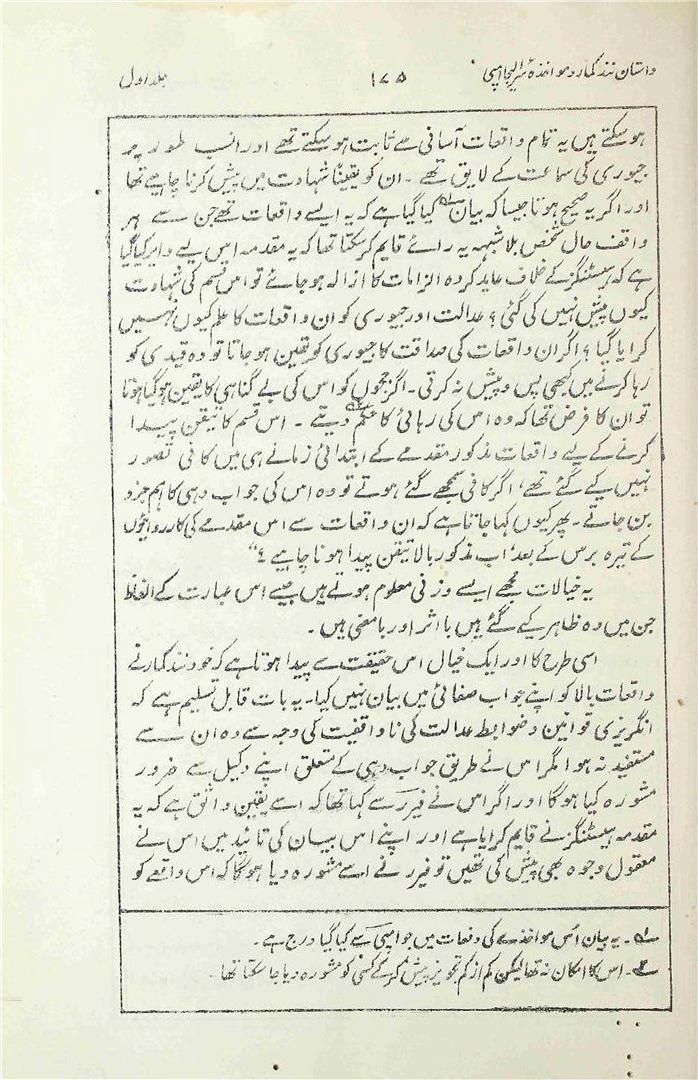 داستان نند کمار و مواخذۂ سر الیجا امپی ۱۷۵ جلد اول
ہو سکتے ہیں یہ تمام واقعات آسانی سے ثابت ہو سکتے تھے اور انسب طور پر
جیوری کی سماعت کے لایق تھے ۔ ان کو یقیناً شہادت میں پیش کرنا چاہیے تھا
اور اگر یہ صحیح ہوتا جیسا کہ بیان کیا گیا ہے کہ یہ ایسے واقعات تھے جن سے ہر
واقف حال شخص بلا شبہہ یہ رائے قایم کر سکتا تھا کہ یہ مقدمہ اس لیے دایر کیا گیا
ہے کہ ہیسٹنگز کے خلاف عاید کردہ الزامات کا ازالہ ہو جائے تو اس قسم کی شہادت
کیوں پیش نہیں کی گئی ؟ عدالت اور جیوری کو ان واقعات کا علم کیوں نہیں
کرایا گیا ؟ اگر ان واقعات کی صداقت کا جیوری کو یقین ہو جاتا تو وہ قیدی کو
رہا کرنے میں کبھی پس و پیش نہ کرتی ۔ اگر ججوں کو اس کی بے گناہی کا یقین ہو گیا ہوتا
تو ان کا فرض تھا کہ وہ اس کی رہائی کا حکم دیتے ۔ اس قسم کا تیقن پیدا
کرنے کے لیے واقعات مذکور مقدمے کے ابتدائی زمانے ہی میں کافی تصور
نہیں کیے گئے تھے، اگر کافی سمجھے گئے ہوتے تو وہ اس کی جواب دہی کا اہم جزو
بن جاتے ۔ پھر کیوں کہا جاتا ہے کہ ان واقعات سے اس مقدمے کی کارروائیوں
کے تیرہ برس کے بعد، اب مذکور بالا تیقن پیدا ہونا چاہیے ؟“
یہ خیالات مجھے ایسے وزنی معلوم ہوتے ہیں جیسے اس عبارت کے الفاظ
جن میں وہ ظاہر کیے گئے ہیں با اثر اور با معنی ہیں ۔
اسی طرح کا اور ایک خیال اس حقیقت سے پیدا ہوتا ہے کہ خود نند کمار نے
واقعات بالا کو اپنے جواب صفائی میں بیان نہیں کیا ۔ یہ بات قابل تسلیم ہے کہ
انگریزی قوانین و ضوابط عدالت کی نا واقفیت کی وجہ سے وہ ان سے
مستفید نہ ہوا مگر اس نے طریق جواب دہی کے متعلق اپنے وکیل سے ضرور
مشورہ کیا ہوگا اور اگر اس نے فیرر سے کہا تھا کہ اسے یقین واثق ہے کہ یہ
مقدمہ ہیسٹنگز نے قایم کرایا ہے اور اپنے اس بیان کی تائید میں اس نے
معقول وجوہ بھی پیش کی تھیں تو فیرر نے اسے مشورہ دیا ہوگا کہ اس واقعے کو
۱؎ ۔ یہ بیان اس مواخذے کی دفعات میں جو امپی سے کیا گیا درج ہے ۔
۲؎ ۔ اس کا امکان نہ تھا لیکن کم از کم تجویز پیش کر کے کسی کو مشورہ دیا جا سکتا تھا ۔